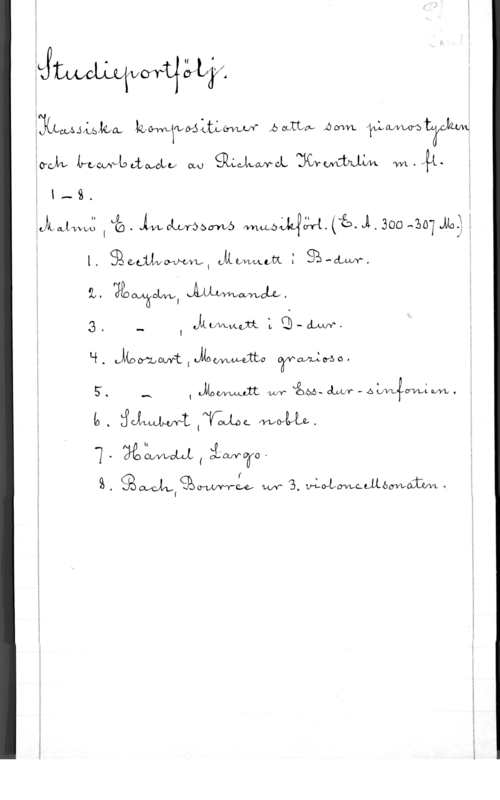 Studieportfölj.
Klassiska kompositioner satta som pianostycken
och bearbetade av Richard Krentzlin m. fl.
1-8.
Malmö, E. Anderssons musikförl. (E. A. 300-307 Mo.)
1. Beethoven, Menuett i B-dur.
2. Haydn, Allemande.
3. - , Menuett i D-dur.
4. Mozart, Menuetto grazioso.
5. - , Menuett ur Ess-dur-sinfonien.
6. Schubert, Valse noble.
7. Händel, Largo.
8. Bach, Bourrée ur 3. violoncellsonaten.